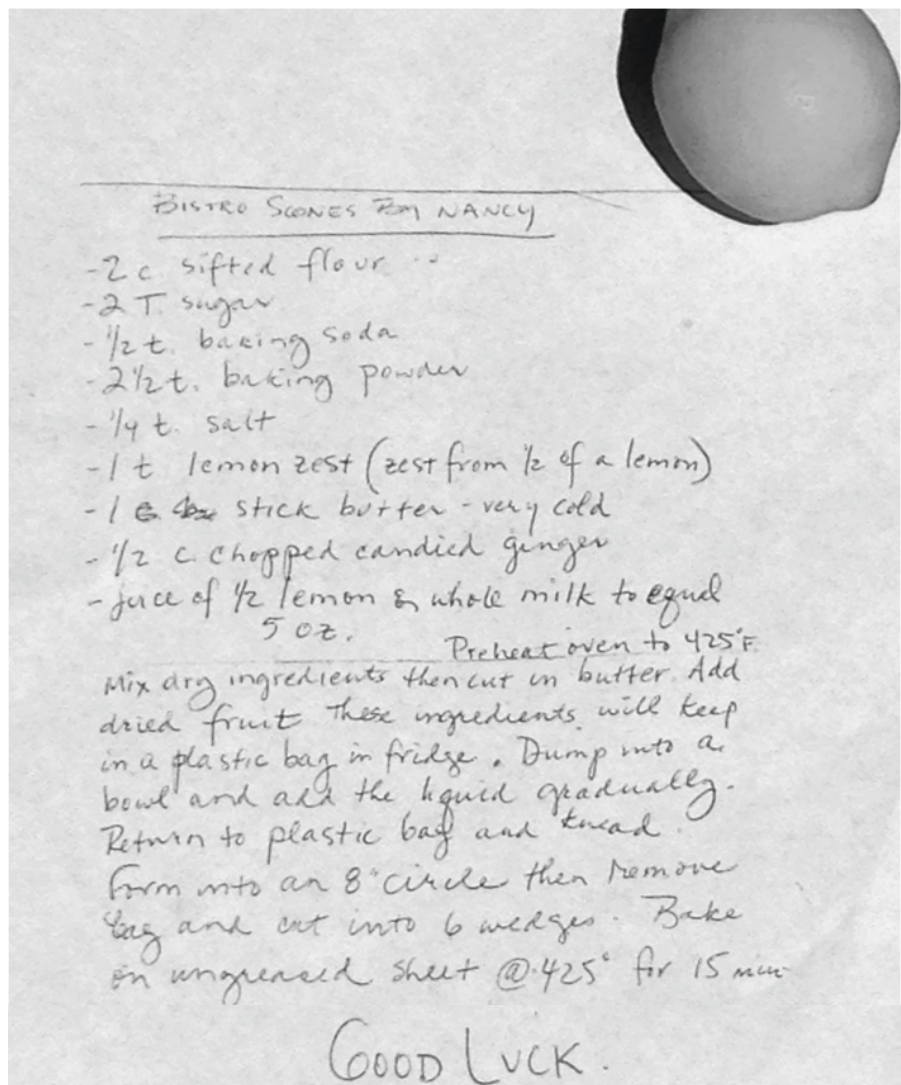 BISTRO SCONES BY NANCY
- 2 c sifted flour
- 2 T. sugar
- 1/2 t. baking soda
- 2 1/2 t. baking powder
- 1/4 t. salt
- 1 t lemon zest (zest from 1/2 of a lemon)
- 1 stick butter - very cold
- 1/2 c. chopped candied ginger
- juice of 1/2 lemon & whole milk to equal
5 oz.
Preheat oven to 425°F.
Mix dry ingredients then cut in butter. Add
dried fruit These ingredients will keep
in a plastic bag in fridge. Dump into a
bowl and add the liquid gradually.
Return to plastic bag and knead.
Form into an 8" circle then remove
bag and cut into 6 wedges. Bake
on ungreased sheet @ 425° for 15 min
GOOD LUCK.